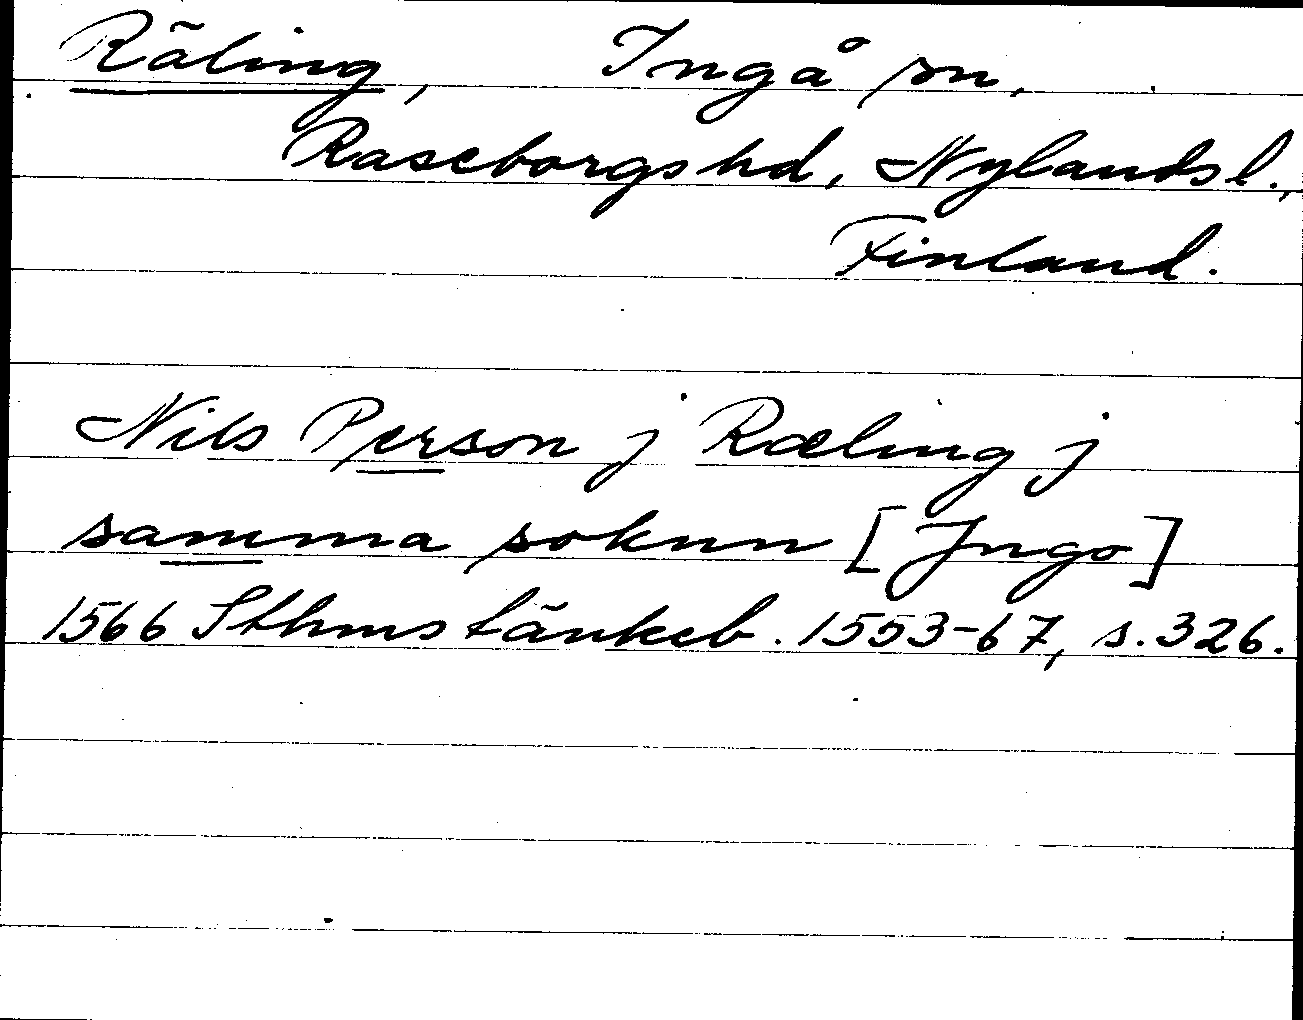 Räling, Ingå sn,
Raseborgs hd, Nylands l.,
Finland.
Nils Person j Ræling j
samma soknn [Jngo]
1566 Sthms tänkeb. 1553-67, s. 326.